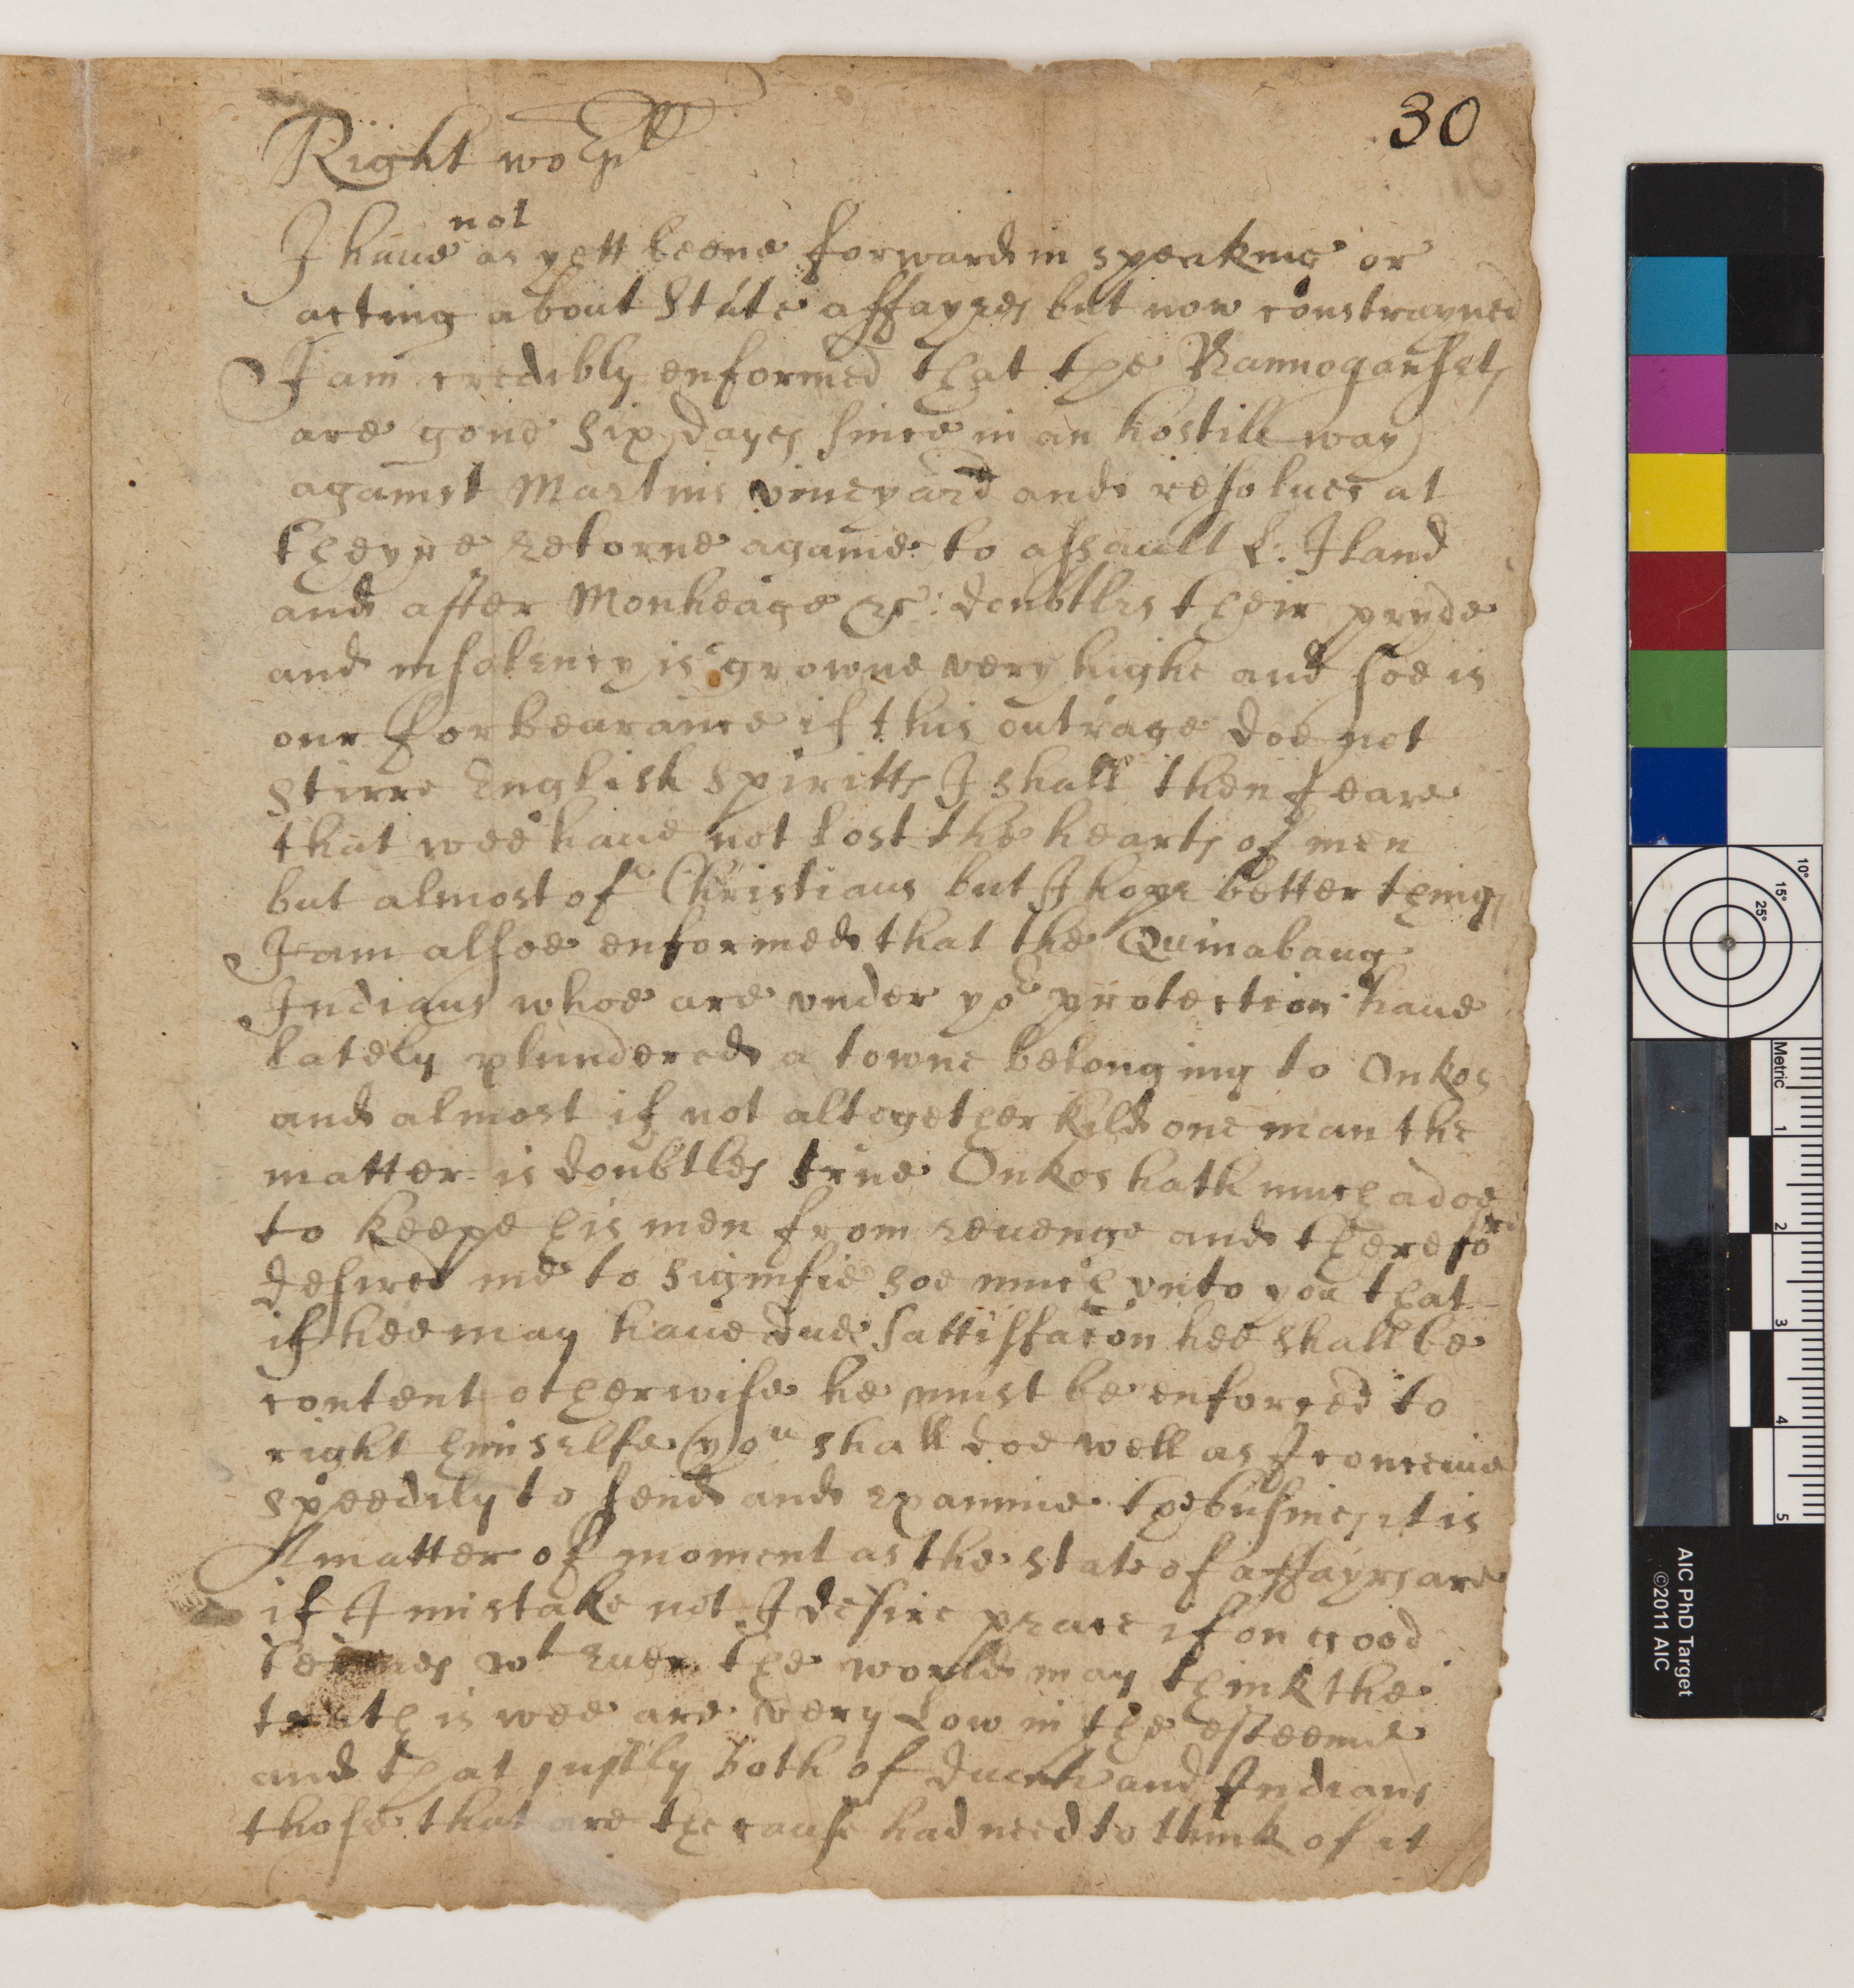 30
Right wopll
not
I haue as yett beene forward in speaking or
acting about State affayres but now constrayned
I am credibly enformed that the Nannogansets
are gone six dayes since in an hostile way
against Martins vineyard and resolues at
theyre retorne againe to assault L: Iland
and after Monheage &c: doubtles their pryde
and insolency is growne very highe and soe is
our forbearance if this outrage doe not
stirre English Spiritts I shall then feare
that wee haue not lost the hearts of men
but almost of Christians but I hope better things
I am alsoe enformed that the Quinabaug
Indians whoe are vnder yor protection haue
lately plundered a towne belonging to Onkos
and almost if not altogether kild one man the
matter is doubtles true Onkos hath much adoe
to keepe his men from reuenge and therefore
desired me to signifie soe much vnto you that
if hee may haue due sattisfacon hee shall be
content otherwise he must be enforced to
right himselfe you shall doe well as I conceiue
speedily to send and examine the busines it is
A matter of moment as the state of affayrs are
if I mistake not I desire peace if on good
termes wt euer the world may think the
truth is wee are very Low in the esteeme
and that justly both of Duch and Indians
those that are the cause had need to think of it
10°
15°
25°
Metric
1
2
3
4
5
AIC PhD Target
©2011 AIC